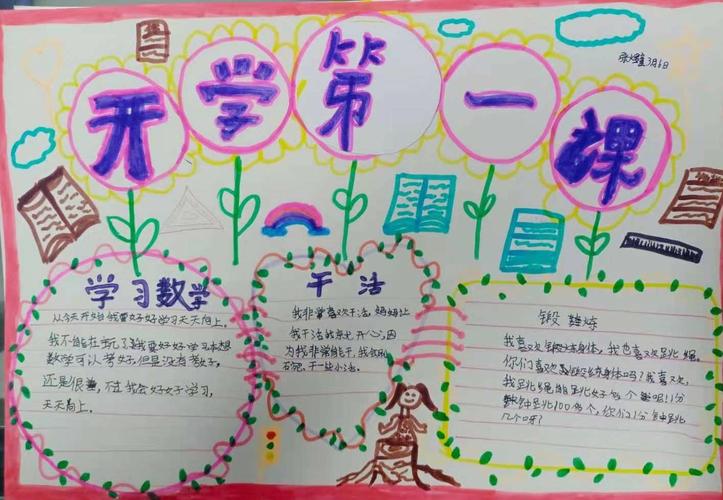 开学第一课
3月6日
学习数学
从今天开始我要好好学习天天向上。
我不能在玩了我要好好学习本想
数学可以考好,但是没有考好,
还是很,不过我会好好学习,
天天向上。
干活
我非常喜欢干活妈妈让
我干活我就开心,因
为我非常能干,我会刷
碗。干一些小活。
锻炼
我喜欢锻炼身体,我也喜欢跳绳。
你们喜欢锻炼身体吗?我喜欢,
我跳绳能跳好多个呢!1分
钟跳100多个,你们1分钟跳
几个呀?